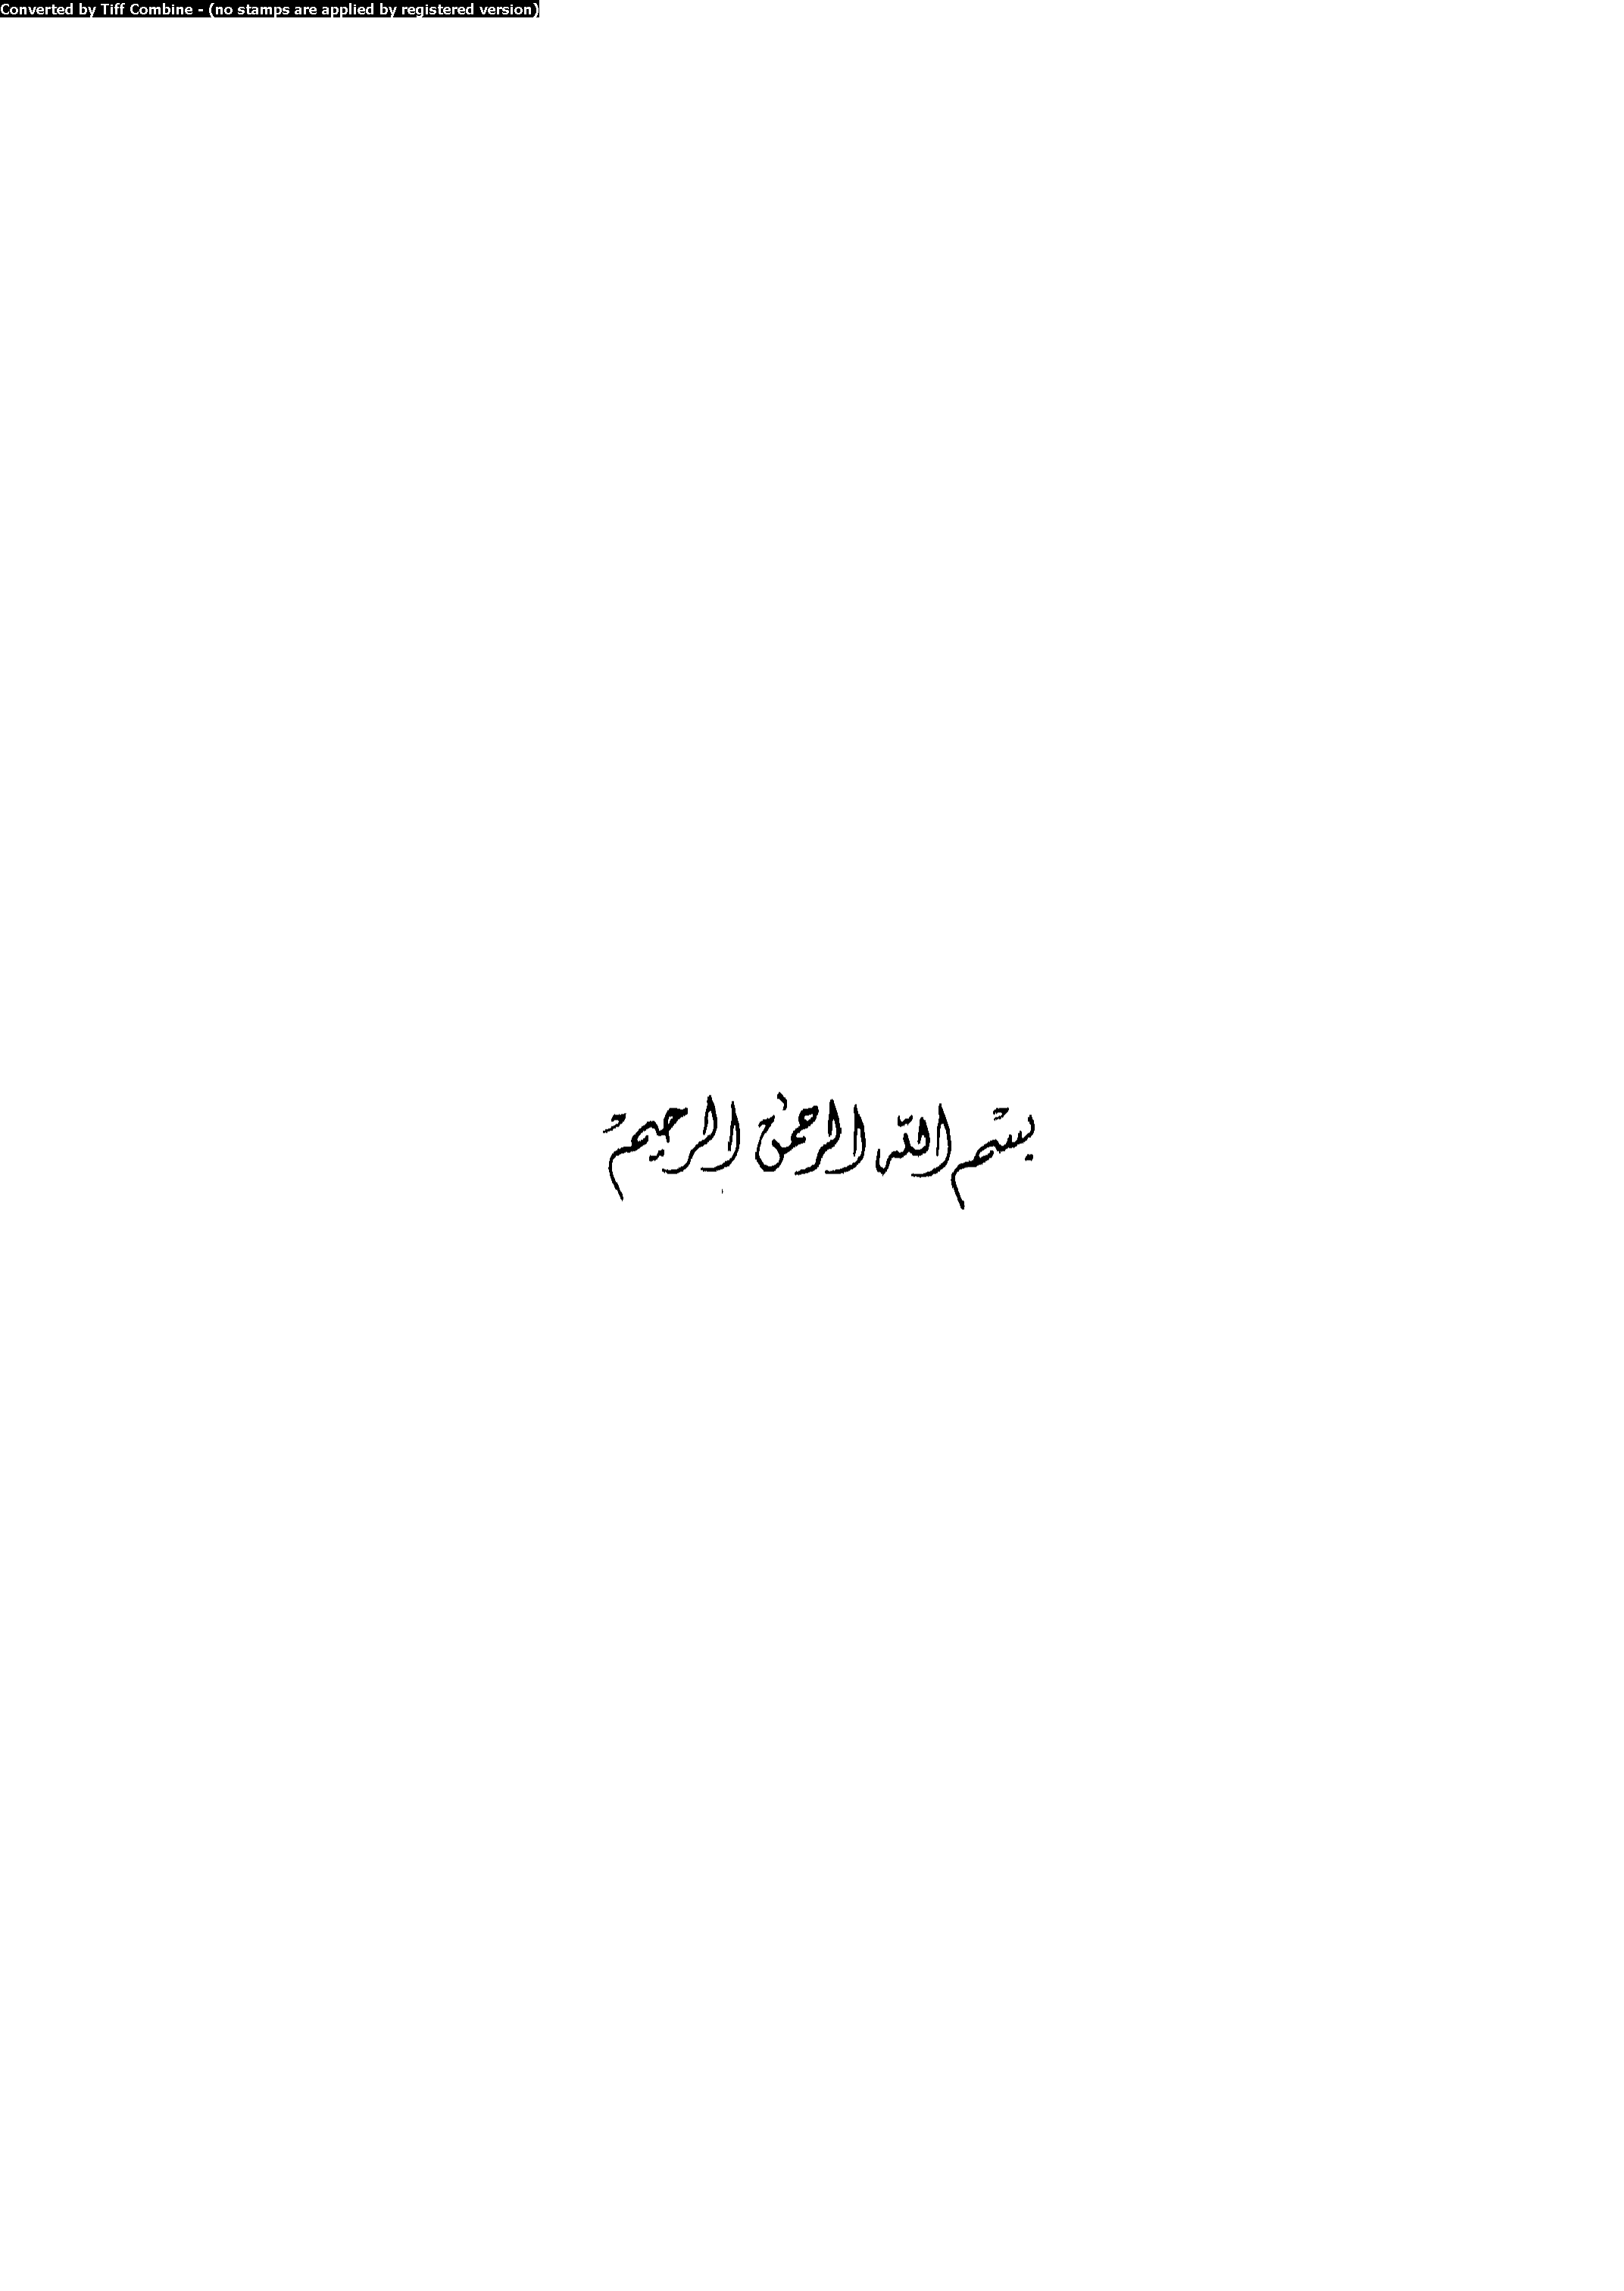 Converted by Tiff Combine - (no stamps are applied by registered version)
بسم الله الرحمن الرحيم